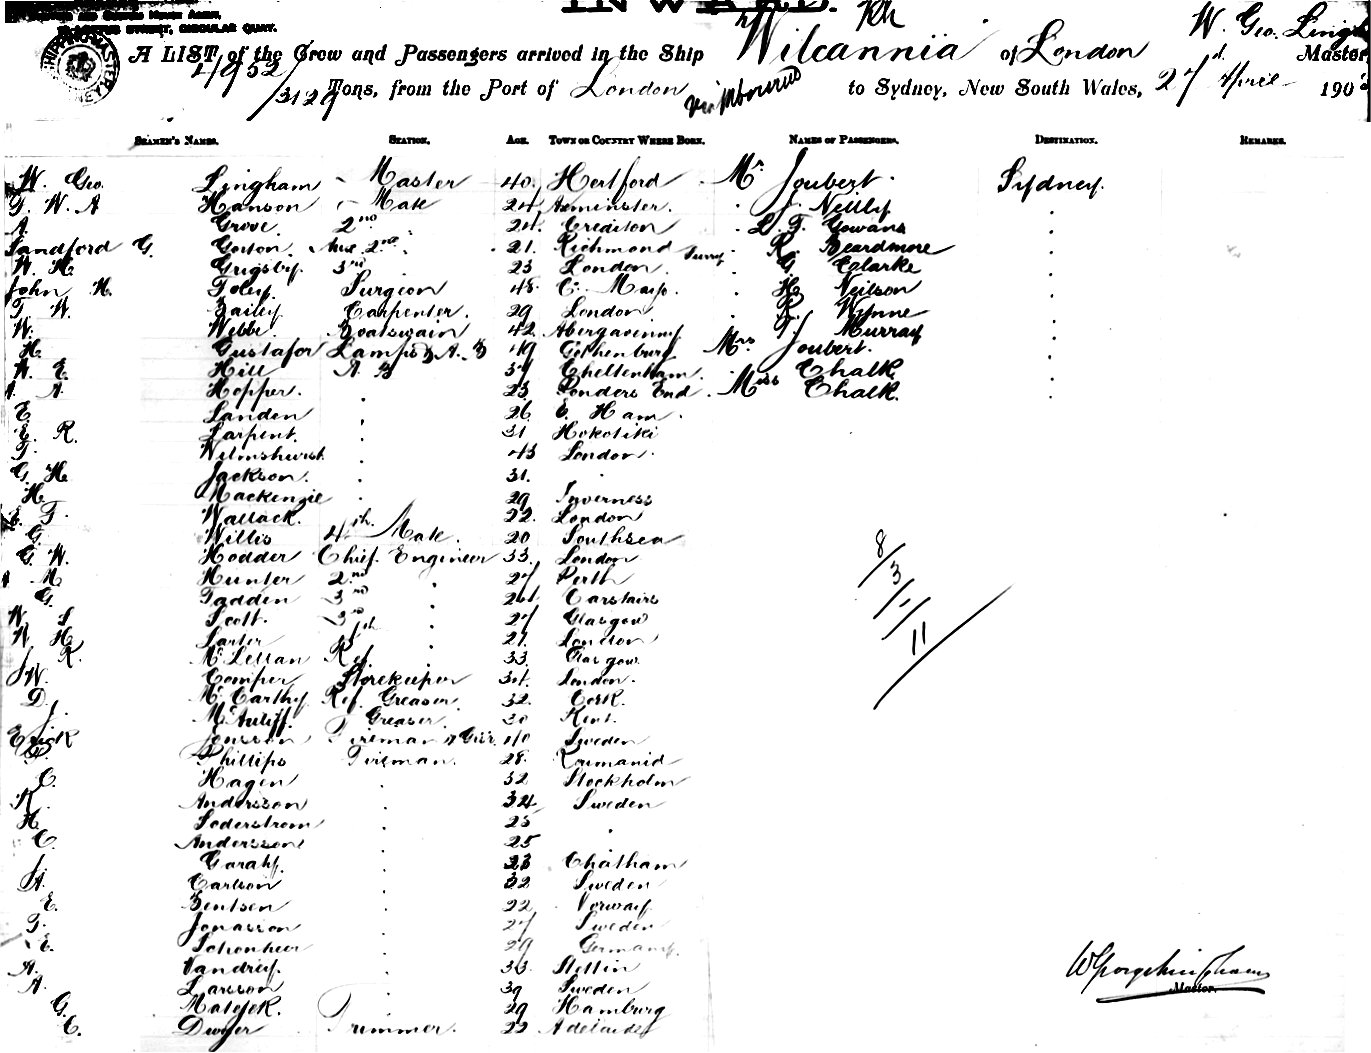 INWARD.
STREET, CIRCULAR QUAY.
A LIST of the Crew and Passengers arrived in the Ship Wilcannia of London W. Geo. Lingham Master,
4952/3129 Tons, from the Port of London via Mbourne to Sydney, New South Wales, 27 April 190
SEAMEN'S NAMES. STATION. AGE. TOWN OR COUNTRY WHERE BORN. NAMES OF PASSENGERS. DESTINATION. REMARKS.
W. Geo. Lingham Master 40 Hertford Mr Joubert Sydney
W. A Hanson Mate 24 Axminster. J. Neilly
A. Grove 2nd 24 Crediton Gowans
Sandford G. Gorton 2nd 21. Richmond Surrey R. Beardmore
W. H Grigsby. 3rd 23 London. G Clarke
John H. Foley. Surgeon 48 C. Mayo. H Neilson
T. W. Bailey. Carpenter. 29 London R Wynne
W. Webb. Boatswain 42 Abergavenny T. J Murray
H. Gustafor Lamps & A. B 49 Gothenburg Mrs Joubert.
W. E. Hill A B 37 Cheltenham. Chalk
A. A. Hopper. 23 Ponders End Miss Chalk.
E Landen 26 E. Ham.
E. R. Larpent. 31 Hokotiki
T. Wilmshurst. 43 London
G. H Jackson. 31.
H. Mackenzie 29 Inverness
T. Wallack. 22. London
G. Willis 4th Mate. 20 Southsea
G. W. Hodder Chief Engineer 33. London
M. Hunter 2nd 27 Perth
G. Tadden 3rd 24 Carstairs
W. S Scott. 3rd 27 Glasgow
W. H Sarter 27. London
R. McLellan Ref. 33. Glasgow.
W. Comper Storekeeper 34. London.
D. McCarthy Ref. Greaser 32. Cork.
J. McAuliff. Greaser. 30 Kent.
Erick Jonsson Fireman & Gr'sr. 40 Sweden
Phillips Fireman. 28. Roumania
C. Hagen 32 Stockholm
K. Andersson 34 Sweden
H. Soderstrom 25
C. Andersson 25
J. Garahy. 23 Chatham
A. Carlson 32 Sweden
E. Bentsen 22 Norway.
T. Jonasson 27 Sweden
E. Schonheer 29 Germany.
A. Vandrey. 33. Stettin
A. Larsson 39 Sweden
G. Matejek. 29 Hamburg
C. Dwyer Trimmer. 22 Adelaide
8/3/1/11
W George Lingham
Master.